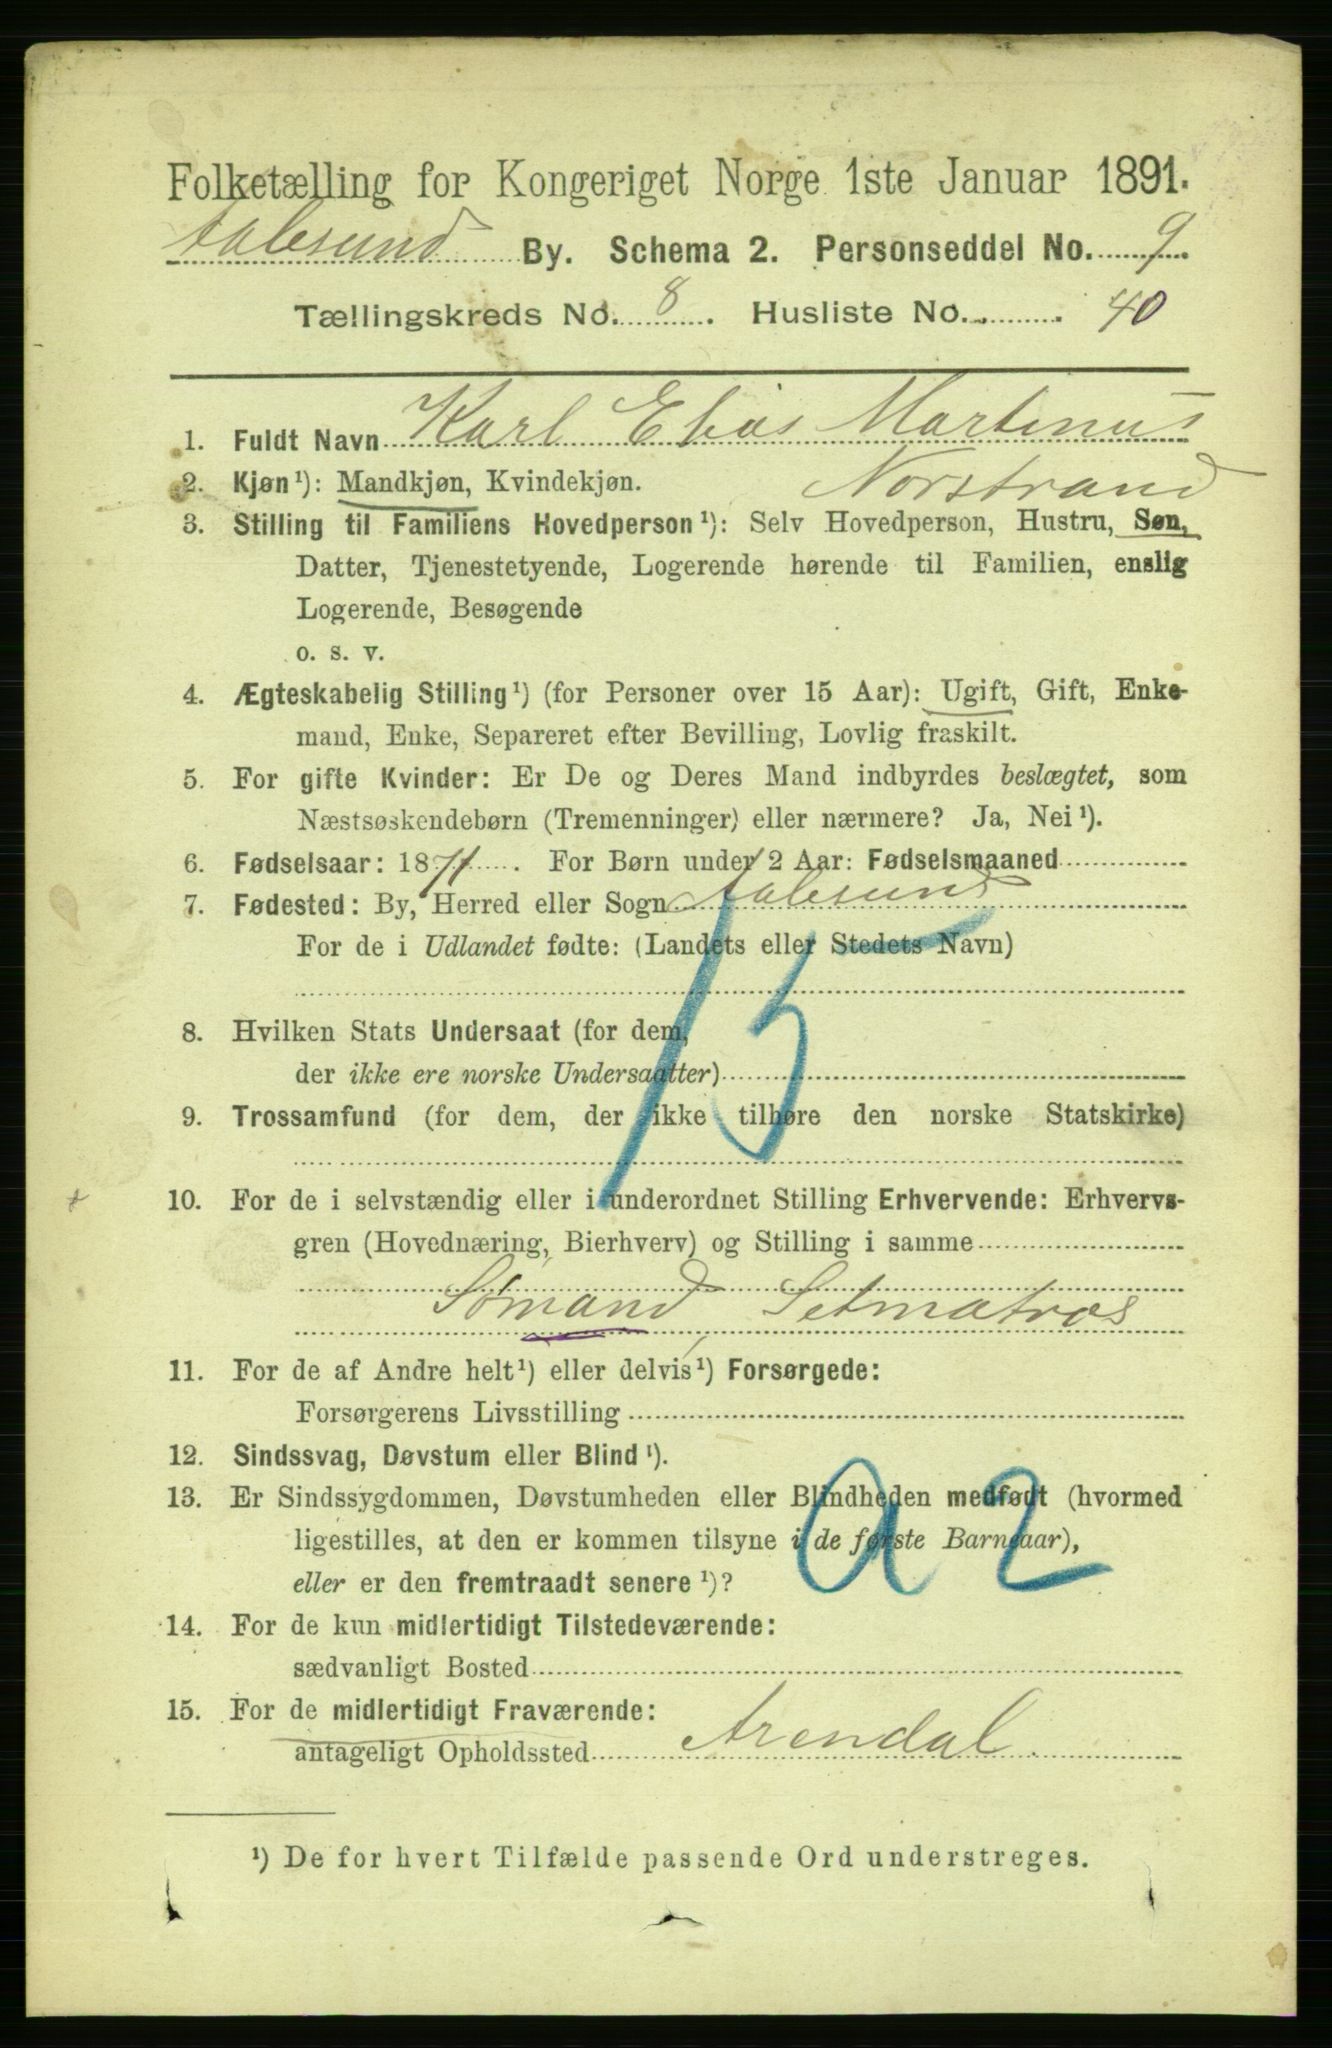 Folketælling for Kongeriget Norge 1ste Januar 1891.
Aalesund By. Schema 2. Personseddel No. 9.
Tællingskreds No. 8. Husliste No. 40
1. Fuldt Navn Karl Elias Martinus
Norstrand
2. Kjøn ¹): Mandkjøn, Kvindekjøn.
3. Stilling til Familiens Hovedperson ¹): Selv Hovedperson, Hustru, Søn,
Datter, Tjenestetyende, Logerende hørende til Familien, enslig
Logerende, Besøgende
o. s. v.
4. Ægteskabelig Stilling ¹) (for Personer over 15 Aar): Ugift, Gift, Enke-
mand, Enke, Separeret efter Bevilling, Lovlig fraskilt.
5. For gifte Kvinder: Er De og Deres Mand indbyrdes beslægtet, som
Næstsøskendebørn (Tremenninger) eller nærmere? Ja, Nei ¹).
6. Fødselsaar: 1871. For Børn under 2 Aar: Fødselsmaaned
7. Fødested: By, Herred eller Sogn Aalesund
For de i Udlandet fødte: (Landets eller Stedets Navn)
15
8. Hvilken Stats Undersaat (for dem,
der ikke ere norske Undersaatter)
9. Trossamfund (for dem, der ikke tilhøre den norske Statskirke)
10. For de i selvstændig eller i underordnet Stilling Erhvervende: Erhvervs-
gren (Hovednæring, Bierhverv) og Stilling i samme
Sømand, Letmatros
11. For de af Andre helt ¹) eller delvis ¹) Forsørgede:
Forsørgerens Livsstilling
12. Sindssvag, Døvstum eller Blind ¹).
13. Er Sindssygdommen, Døvstumheden eller Blindheden medfødt (hvormed
ligestilles, at den er kommen tilsyne i de første Barneaar),
eller er den fremtraadt senere ¹)?
a 2
14. For de kun midlertidigt Tilstedeværende:
sædvanligt Bosted
15. For de midlertidigt Fraværende:
antageligt Opholdssted Arendal
¹) De for hvert Tilfælde passende Ord understreges.